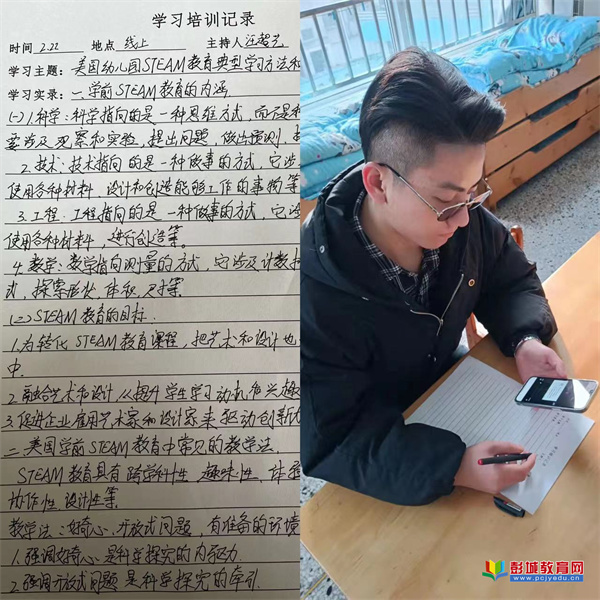 学习培训记录
时间 2.22 地点 线上 主持人
学习主题：美国幼儿园STEAM教育典型学习方法和
学习实录：一.学前STEAM教育的内涵
(一)1.科学：科学指向的是一种思维方式，而不是
要涉及观察和实验，提出问题，做出预测，
2.技术：技术指向的是一种做事的方式，它涉
使用各种材料，设计和创造能够工作的事物等
3.工程：工程指向的是一种做事的方式，它涉
使用各种材料，进行创造等。
4.数学：数学指向测量的方式，它涉及计数
式，探索形状，体积，尺寸等.
(二)STEAM教育的目标.
1.为转化STEAM教育课程，把艺术和设计也
中.
2.融合艺术和设计，以提升学生学习动机和兴趣
3.促进企业雇用艺术家和设计家来驱动创新
二.美国学前STEAM教育中常见的教学法.
STEAM教育具有跨学科性，趣味性，体验
协作性，设计性等.
教学法：好奇心，开放式问题，有准备的环境
1.强调好奇心是科学探究的内驱力.
2.强调开放式问题是科学探究的牵引.
彭城教育网
www.pcjyedu.cn